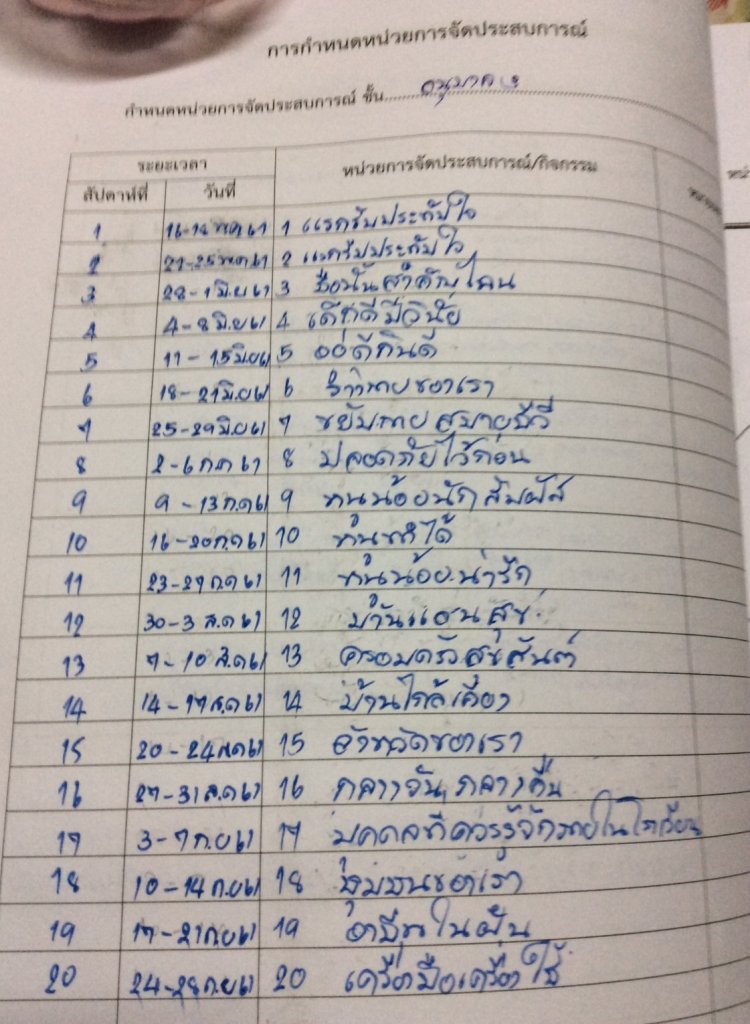 การกำหนดหน่วยการจัดประสบการณ์
กำหนดหน่วยการจัดประสบการณ์ ชั้น อนุบาล
ระยะเวลา หน่วยการจัดประสบการณ์/กิจกรรม
สัปดาห์ที่ วันที่
1 16-18 พ.ค 61 1 แรกรับประทับใจ
2 21-25 พ.ค 61 2 แรกรับประทับใจ
3 28-1 มิ.ย 61 3 ชื่อนั้นสำคัญไฉน
4 4-8 มิ.ย 61 4 เด็กดีมีวินัย
5 11-15 มิ.ย 61 5 อยู่ดีกินดี
6 18-21 มิ.ย 61 6 ร่างกายของเรา
7 25-29 มิ.ย 61 7 ขยับกายสบายชีวี
8 2-6 ก.ค 61 8 ปลอดภัยไว้ก่อน
9 9-13 ก.ค 61 9 หนูน้อยนักสัมผัส
10 16-20 ก.ค 61 10 หนูทำได้
11 23-27 ก.ค 61 11 หนูน้อยน่ารัก
12 30-3 ส.ค 61 12 บ้านแสนสุข
13 7-10 ส.ค 61 13 ครอบครัวสุขสันต์
14 14-17 ส.ค 61 14 บ้านใกล้เคียง
15 20-24 ส.ค 61 15 จังหวัดของเรา
16 27-31 ส.ค 61 16 กลางวัน กลางคืน
17 3-7 ก.ย 61 17 บุคคลที่ควรรู้จักภายในโรงเรียน
18 10-14 ก.ย 61 18 ชุมชนของเรา
19 17-21 ก.ย 61 19 อาชีพในฝัน
20 24-28 ก.ย 61 20 เครื่องมือเครื่องใช้